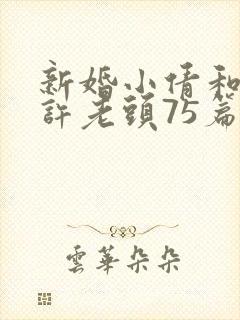 新婚小倩和
許老頭75篇
雲華朵朵